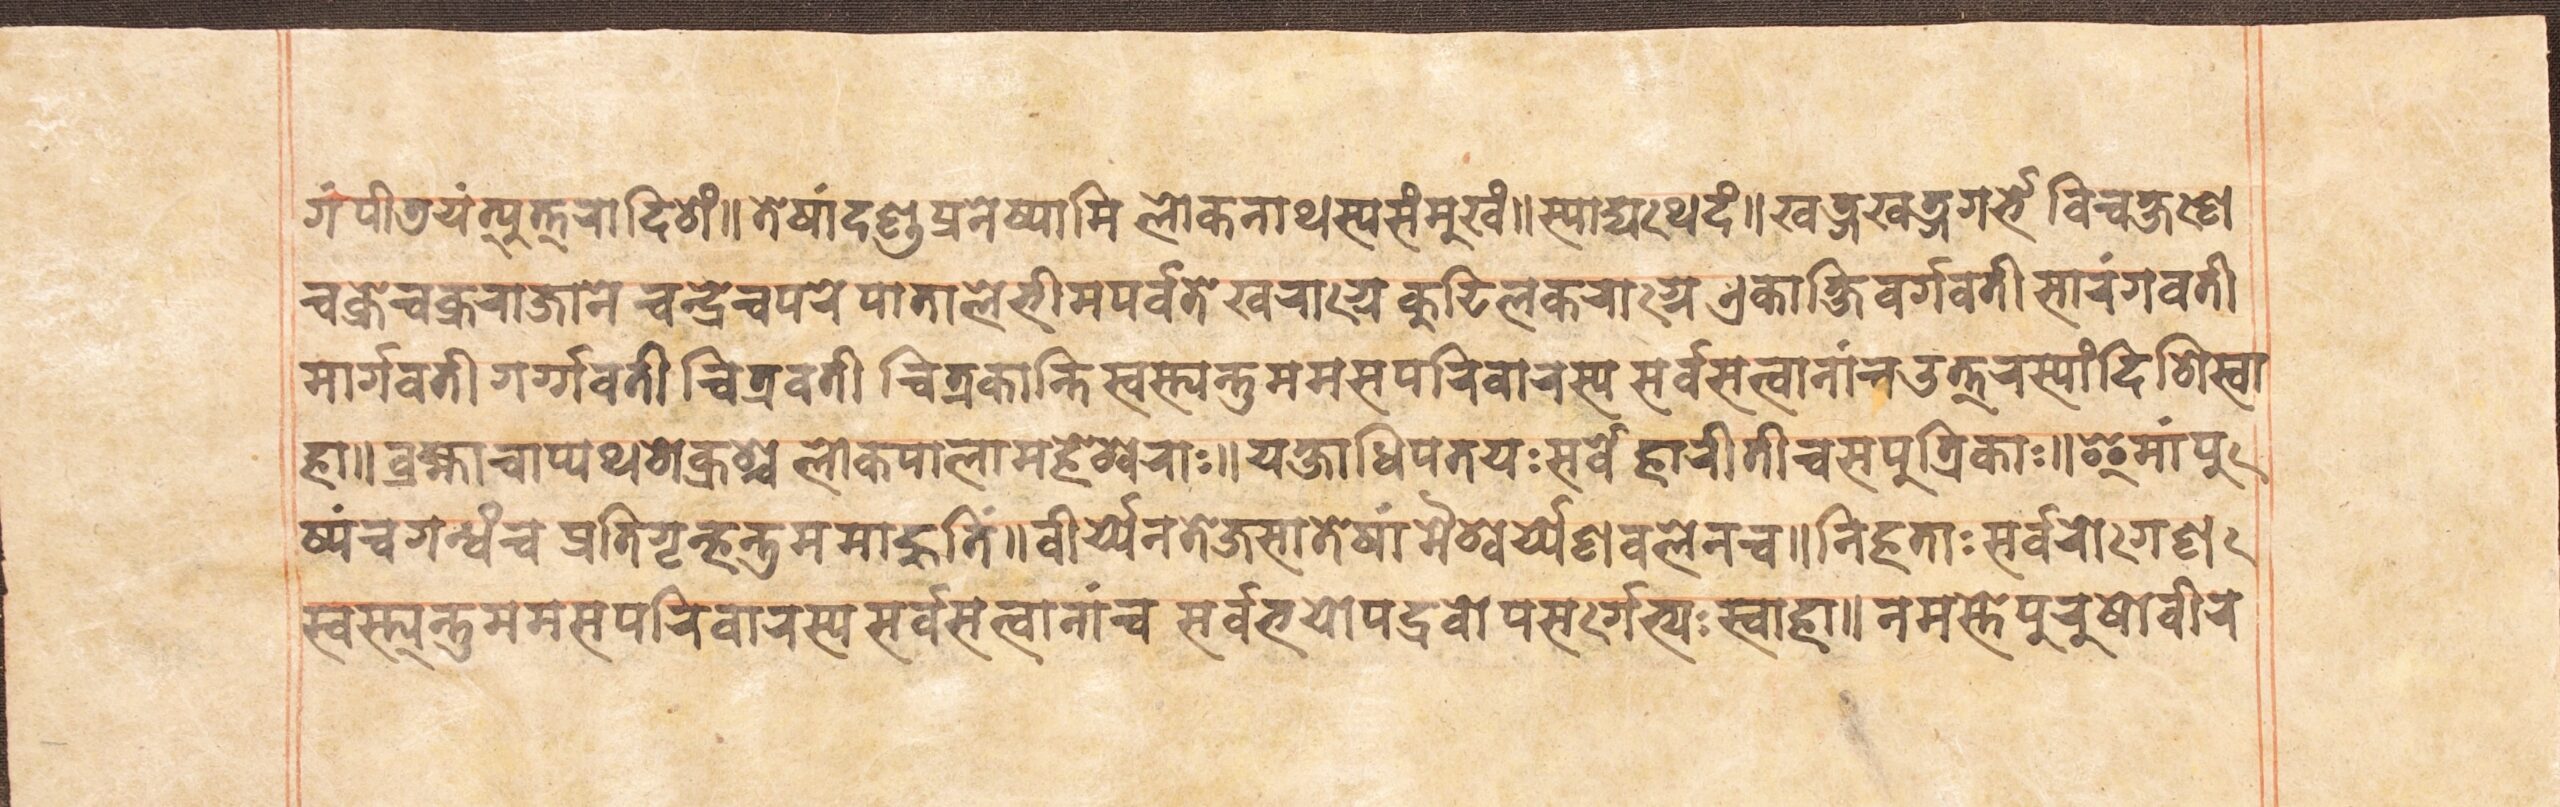 गं पीतयंत्पुत्तरादिशं॥ तेषां दण्डु प्रनेष्यामि लोकनाथस्य संमुखं॥ स्याद्यथेदं॥ खड्गखड्गगर्भे विचक्षणे
चक्रे चक्रराजाने चन्द्रे चपरे पाताले भीमपर्वते खराग्रे कुटिलकराग्रे एकाक्षि वर्गवती सारंगवती
मार्गवती गर्ग्गवती चित्रवती चित्रकान्ति स्वस्त्यन्तु मम सपरिवारस्य सर्वसत्वानांच उत्तरस्यां दिशि स्वा
हा॥ ब्रह्माचाप्यथ शक्रश्च लोकपाला महेश्वराः॥ यक्षाधिपतयः सर्वे हारीती च सपुत्रिकाः॥ इमां पु
ष्पं च गन्धं च प्रतिगृन्हन्तु ममाहुतिं॥ वीर्य्येन तेजसा तेषां मैश्वर्य्येण वलेन च॥ निहताः सर्वरोगेण
स्वस्त्यन्तु मम सपरिवारस्य सर्वसत्वानांच सर्वभयोपद्रवोपसर्गेभ्यः स्वाहा॥ नमस्ते पुरुषो वीर